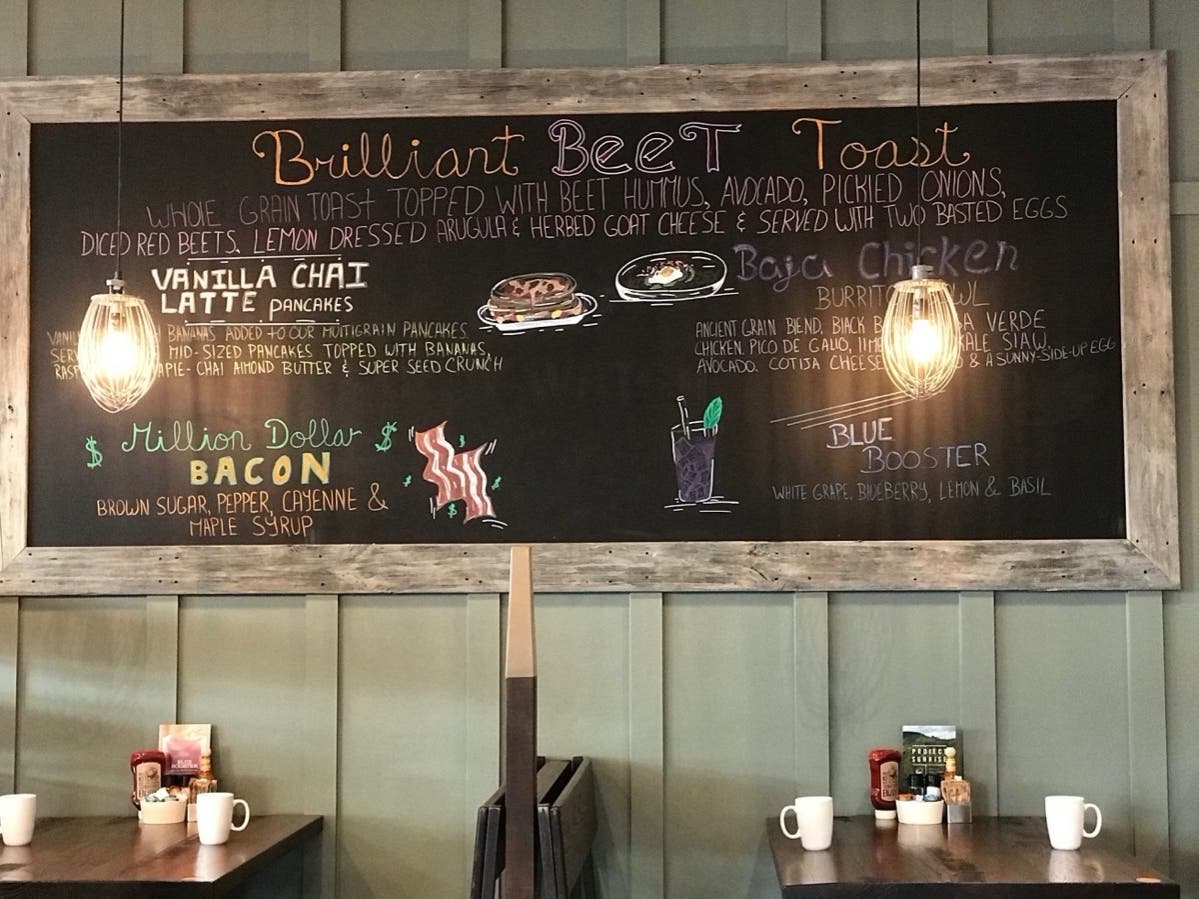 Brilliant BeeT Toast
WHOLE GRAIN TOAST TOPPED WITH BEET HUMMUS, AVOCADO, PICKLED ONIONS,
DICED RED BEETS, LEMON DRESSED ARUGULA & HERBED GOAT CHEESE & SERVED WITH TWO BASTED EGGS
VANILLA CHAI
LATTE PANCAKES
BANANAS ADDED TO OUR MULTIGRAIN PANCAKES
MID-SIZED PANCAKES TOPPED WITH BANANAS,
CHAI ALMOND BUTTER & SUPER SEED CRUNCH
Million Dollar
BACON
BROWN SUGAR, PEPPER, CAYENNE &
MAPLE SYRUP
Baja Chicken
ANCIENT GRAIN BLEND, BLACK VERDE
CHICKEN, PICO DE GALLO, KALE SLAW,
AVOCADO, COTIJA CHEESE & A SUNNY-SIDE-UP EGG
BLUE
BOOSTER
WHITE GRAPE, BLUEBERRY, LEMON & BASIL
PROJECT
SUNRISE